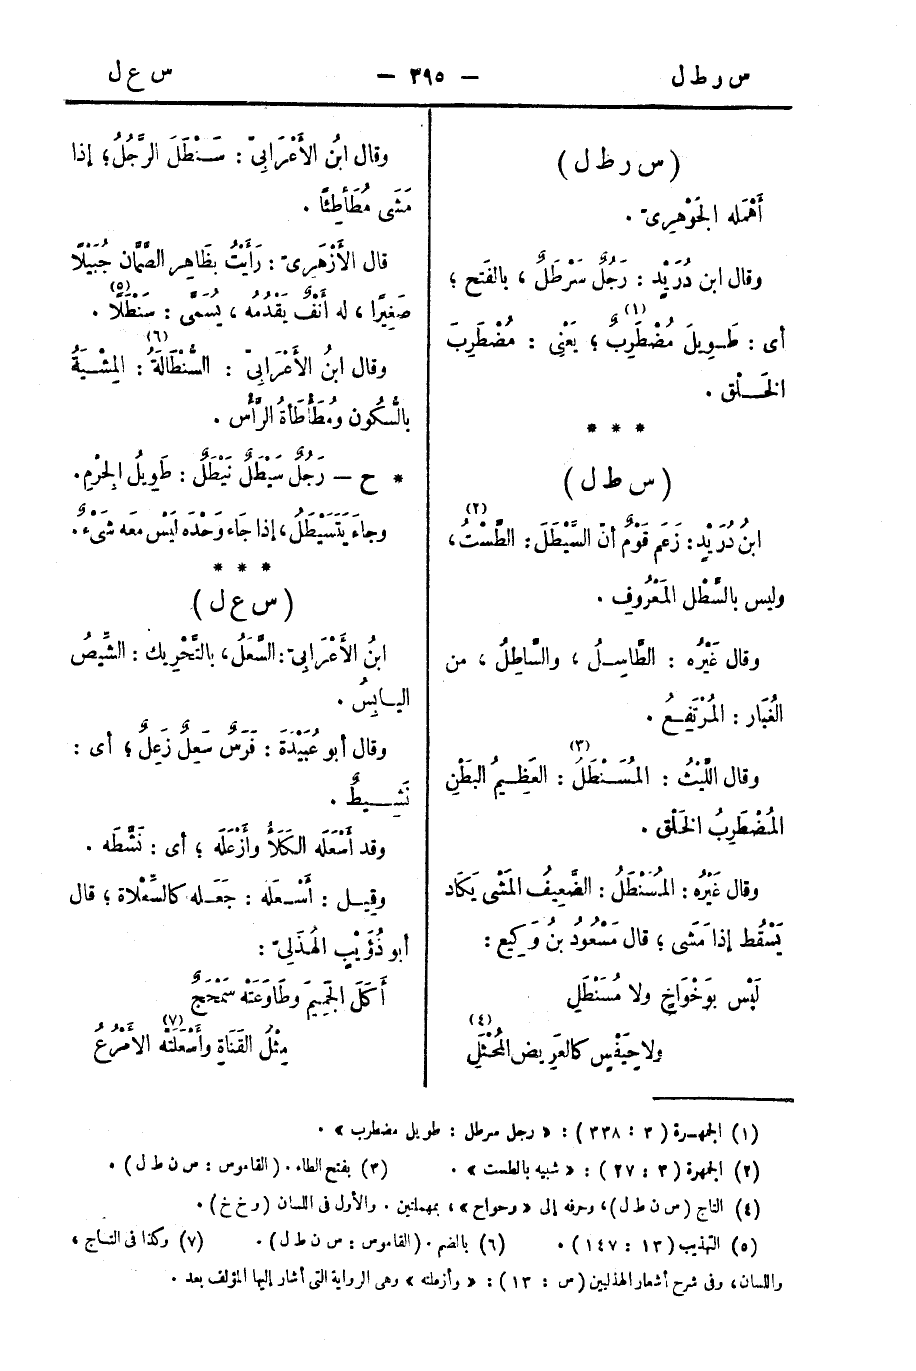 س ر ط ل — ٣٩٥ — س ع ل
( س ر ط ل )
أَهْمَله الجَوْهرىّ .
وقال ابن دُرَيْدٍ : رَجُلٌ سَرْطَلٌ ، بالفَتح ؛
أى : طَوِيلٌ مُضْطَرِبٌ (١) ؛ يَعْنِى : مُضْطَرِبَ
الخَلْق .
* * *
( س ط ل )
ابنُ دُرَيْدٍ : زَعَم قَوْمٌ أنّ السَّيْطَلَ : الطَّسْتُ (٢) ،
وليس بالسَّطْل المَعْرُوفِ .
وقال غَيْرُه : الطَّاسِلُ ، والسَّاطِلُ ، من
الغُبَار : المُرْتَفِعُ .
وقال اللَّيْثُ : المُسَنْطَلُ (٣) : العَظِيمُ البَطْنِ
المُضْطَرِبُ الخَلْق .
وقال غَيْرُه : المُسَنْطَلُ : الضَّعِيفُ المَشْى يَكَاد
يَسْقُط إذا مَشَى ؛ قال مَسْعُودُ بنُ وَكِيع :
لَيْس بِوَخْوَاخٍ ولا مُسَنْطَلِ
ولا حِيَفْسٍ كالعَرِيضِ المُحْثَلِ (٤)
وقال ابنُ الأَعْرَابىّ : سَنْطَلَ الرَّجُلُ ؛ إذا
مَشَى مُطَأْطِئًا .
قال الأَزْهَرِىّ : رَأَيْتُ بظَاهِر الصَّمَّان جُبَيْلًا
صَغِيرًا ، له أَنْفٌ يَقْدُمُه ، يُسَمَّى : سَنْطَلًا (٥) .
وقال ابنُ الأَعْرَابىّ : السُّنْطَالَةُ (٦) : المِشْيَةُ
بالسُّكُون ومُطَأْطَأةُ الرَّأْس .
* ح — رَجُلٌ سَيْطَلٌ نَيْطَلٌ : طَوِيلُ الجِرْمِ .
وجاءَ يَتَسَيْطَلُ ، إذا جَاء وَحْدَه لَيْس مَعَه شَىْءٌ .
* * *
( س ع ل )
ابنُ الأَعْرَابىّ : السَّعَلُ ، بالتَّحْرِيك : الشِّيصُ
اليَابِسُ .
وقال أبو عُبَيْدَةَ : فَرَسٌ سَعِلٌ زَعِلٌ ؛ أى :
نَشِيطٌ .
وقد أَسْعَلَه الكَلَأُ وأَزْعَلَه ؛ أى : نَشَّطَه .
وقِيل : أَسْعَلَه : جَعَلَه كالسِّعْلاة ؛ قال
أبو ذُؤَيْبٍ الهُذَلىّ :
أَكَلَ الجَمِيمَ وطَاوَعَتْه سَمْحَجٌ
مِثْلُ القَنَاةِ وأَسْعَلَتْه (٧) الأَمْرُعُ
(١) الجمهرة ( ٣ : ٣٣٨ ) : « رجل سرطل : طويل مضطرب » .
(٢) الجمهرة ( ٣ : ٢٧ ) : « شبيه بالطست » . (٣) بفتح الطاء . ( القاموس : س ن ط ل ) .
(٤) التاج ( س ن ط ل ) ، وحرفه إلى « وحواح » ، بمهملتين . والأول فى اللسان ( و خ خ ) .
(٥) التهذيب ( ١٣ : ١٤٧ ) . (٦) بالضم . ( القاموس : س ن ط ل ) . (٧) وكذا فى التاج ،
واللسان ، وفى شرح أشعار الهذليين ( ص : ١٣ ) : « وأزعلته » وهى الرواية التى أشار إليها المؤلف بعد .